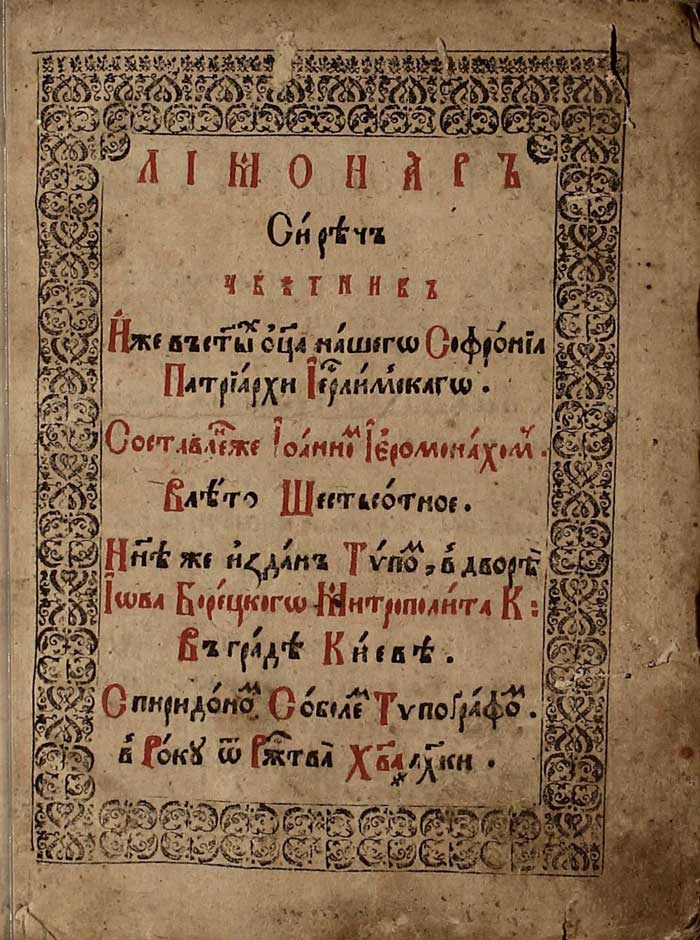 ЛІМОНАРЪ
Сирѣчъ
ЦВѢТНИКЪ
Иже въ ст҃ы́хъ ѻц҃а на́шегѡ Софро́нїа
Патрїа́рхи Іерⷭ҇ли́мскагѡ.
Составле́нⷩ҇же Іѡа́нноⷨ Іеромона́хомъ.
Влѣ́то Шестьсо́тное.
Нн҃ѣ же изда́нъ Ту́поⷨ, в̾ дворѣ̀
Іѡва Боре́цкогѡ Митрополи́та К:
Въ гра́дѣ Кі́евѣ.
Спиридо́ноⷨ Собо́леⷨ Тѵпогра́фоⷨ.
в̾ Ро́ку ѿ Рⷤ҇тва̀ Хв҃а ҂ахк҃и.